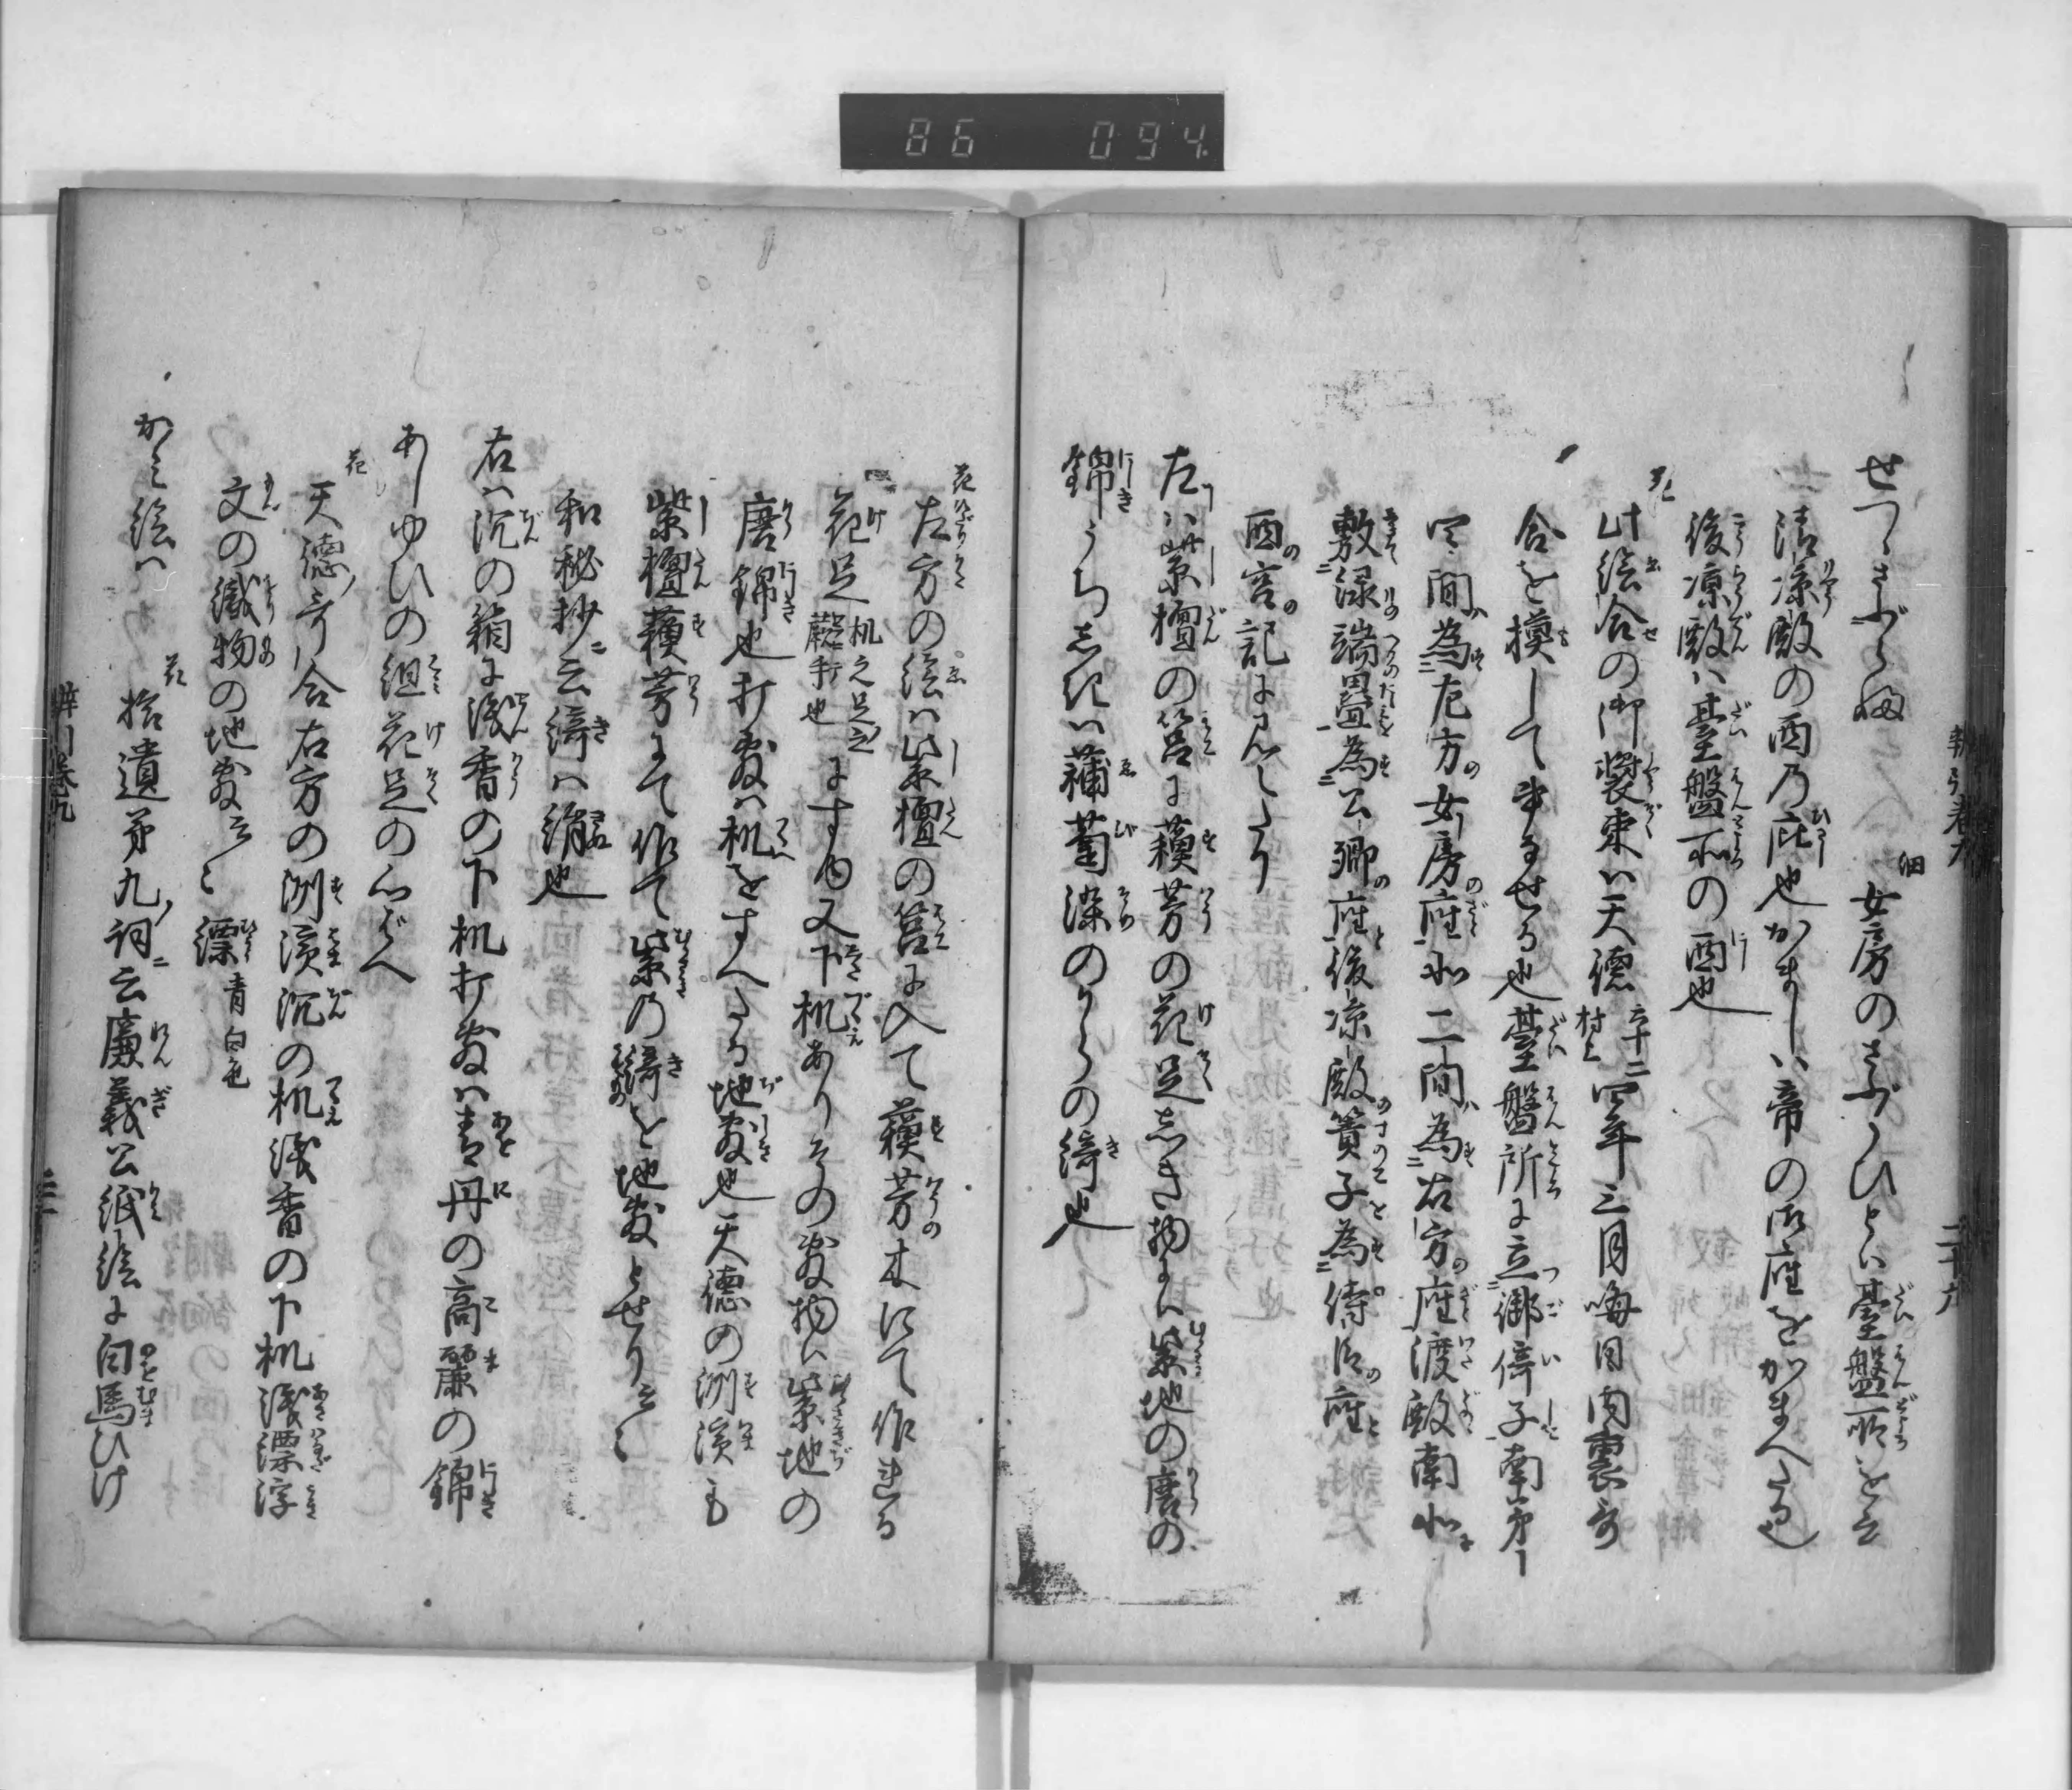 86 094
せつゝさふらふ 細 女房のさふらひとハ臺盤所を云
清凉殿の西乃庇也かましハ帝の御座をかまへたる也
後凉殿ハ臺盤所の西也
花 此絵合の御装束ハ天徳四年 六十二 村上 三月晦日内裏哥
合を模して書るせる也臺盤所に立御倚子南第一
四間為左方女房座北二間為右方座渡殿南北
敷緑端畳為公卿座後凉殿簀子為侍臣座
西宮記に見えたり
左ハ紫檀の筥に蘓芳の花足しき物にハ紫地の唐の
錦うちしきハ蒲萄染のからの綺也
花 左方の絵ハ紫檀の筥に入て蘓芳木にて作れる
花足 机之足之 也 にす由又下机ありその敷物ハ紫地の
唐錦也打敷ハ机をすへたる地敷也天徳の洲濱も
紫檀蘓芳にて作て紫乃綺を地敷とせり云々
和秘抄ニ云綺ハ絹也
右ハ沉の箱に浅香の下机打敷ハ青丹の高麗の錦
あしゆひの組花足の心はへ
花 天徳ノ哥合右方の洲濱沉の机浅香の下机浅縹浮
文の織物の地敷云々 縹 青白色
かみ絵ハ 花 拾遺第九ノ詞ニ云廉義公紙絵に白馬ひけ